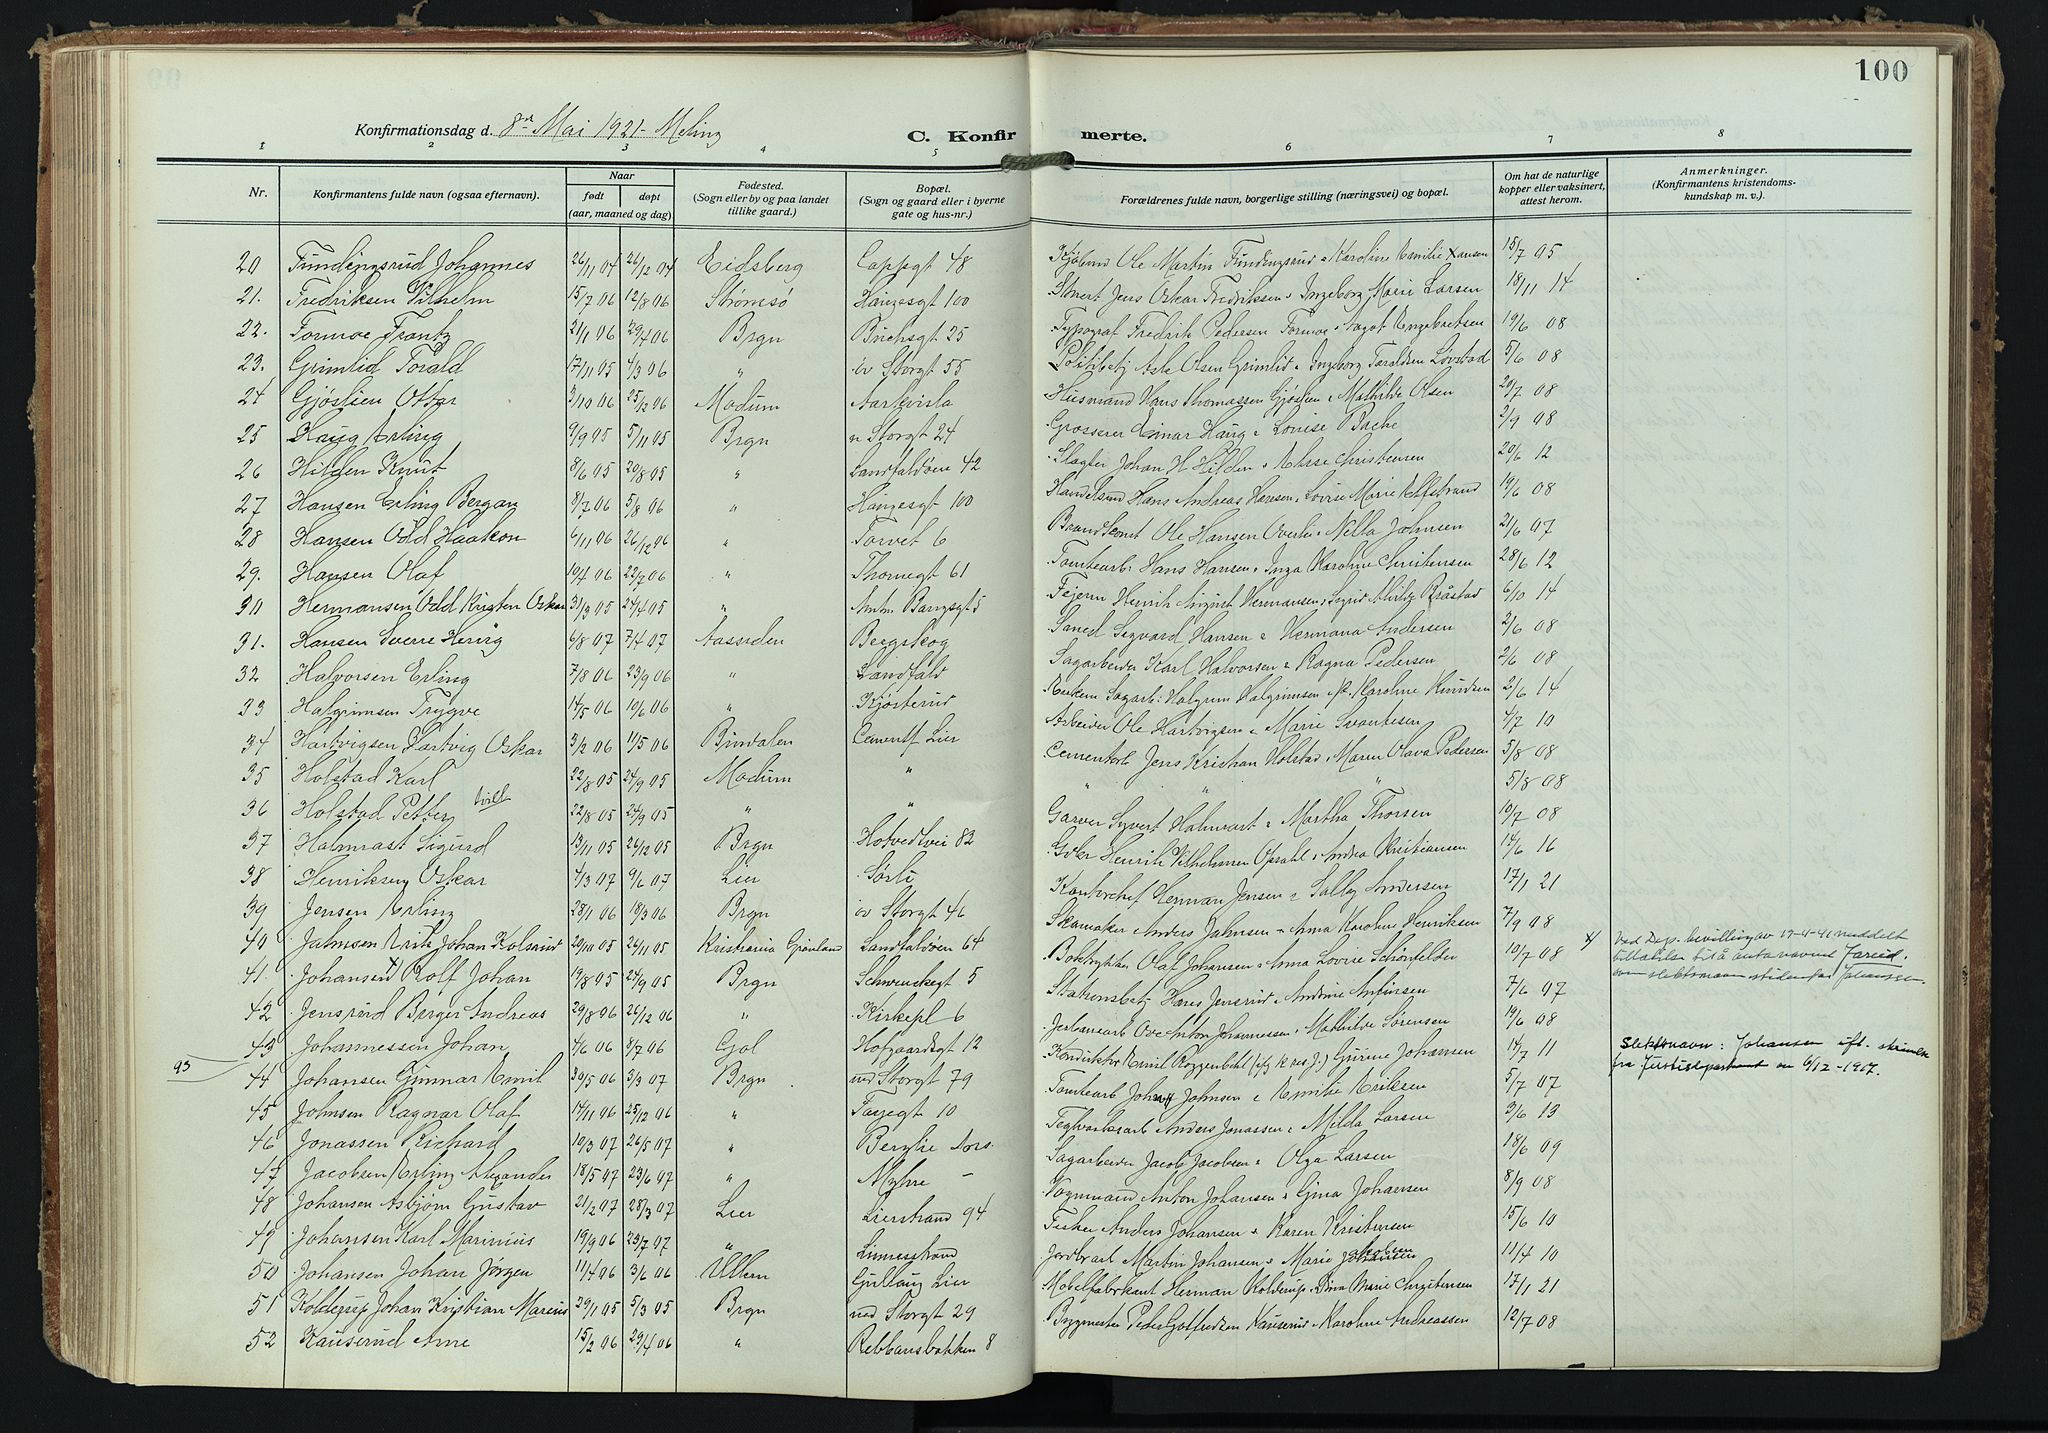 100
Konfirmationsdag d. 8de Mai 1921 - Meling
C. Konfirmerte.
1 2 3 4 5 6 7 8
Nr. Konfirmantens fulde navn (ogsaa efternavn). Naar født døpt (aar, maaned og dag) Fødested. (Sogn eller by og paa landet tillike gaard.) Bopæl. (Sogn og gaard eller i byerne gate og hus-nr.) Forældrenes fulde navn, borgerlige stilling (næringsvei) og bopæl. Om hat de naturlige kopper eller vaksinert, attest herom. Anmerkninger. (Konfirmantens kristendomskundskap m. v.).
20 Fundingsrud Johannes 26/11 04 26/12 04 Eidsberg Cappsgt 48 Kjøbmd Ole Martin Fundingsrud & Karoline Emilie Hansen 15/7 05
21. Fredriksen Vilhelm 15/7 06 12/8 06 Strømsø Haugesgt 100 Jens Oskar Fredriksen & Ingeborg Marie Larsen 18/11 14
22. Formoe Frantz 21/1 06 29/7 06 Brgn Buchsgt 25 Typograf Fredrik Pedersen Formoe & Aagot Engebretsen 19/6 08
23. Grimlid Torald 17/11 05 4/3 06 " øv Storgt 55 Politibetj Asle Olsen Grimlid & Ingeborg Taraldsen Lovstad 5/6 08
24 Gjøslien Ottar 3/10 06 25/12 06 Modum Husmand Hans Thomassen Gjøslien & Mathilde Olsen 20/7 08
25 Haug Erling 9/9 05 5/11 05 Brgn n Storgt 24 Grosserer Einar Haug & Lovise Bache 2/9 08
26 Hilden Knut 8/6 05 20/8 05 " Landfaldøen 42 Slagter Johan H Hilden & Else Christensen 20/6 12
27 Hansen Erling Bergan 8/7 06 5/8 06 " Haugesgt 100 Handelsmd Hans Andreas Hansen & Lovise Marie Elfstrand 19/6 08
28 Hansen Odd Haakon 6/11 06 26/12 06 " Torvet 6 Brandkonst Ole Hansen Overli & Nilla Johnsen 21/6 07
29. Hansen Olaf 10/4 06 22/7 06 " Thornegt 61 Tomtearb Hans Hansen & Inga Karoline Christensen 28/6 12
30 Hermansen Odd Kristen Oskar 31/3 05 24/4 05 " Henrik August Hermansen & Sigrid Bråstad 6/10 14
31. Hansen Sverre Henrig 6/8 07 7/4 07 Aassiden Bergskog Sigvard Hansen & Hermana Andersen 2/6 08
32 Halvorsen Erling 7/8 06 23/9 06 " Landfald Sagarbeider Karl Halvorsen & Ragna Pedersen 2/6 08
33 Halgrimsen Trygve 14/5 06 10/6 06 " Kjøsterud Sagarb: Halgrim Halgrimsen & Karoline Knudsen 2/6 14
34 Hartvigsen Hartvig Oskar 3/2 06 11/5 06 Bindalen Cementf Lier Arbeider Ole Hartvigsen & Marie Svantesen 4/7 10
35 Holstad Karl 22/8 05 24/9 05 Modum " Cementarb Jens Kristian Holstad & Maren Olava Pedersen 5/8 08
36 Holstad Petter tvill 22/8 05 24/9 05 " " " " 5/8 08
37 Halmrast Sigurd 13/11 05 26/12 05 Brgn Hotvedtvei 82 Garver Syvert Halmrast & Martha Thorsen 10/7 08
38 Henriksen Oskar 4/3 07 9/6 07 Lier Sørli Henrik Vilhelmsen Opsahl & Andrea Kristiansen 14/6 16
39 Jensen Erling 28/1 06 18/3 06 Brgn øv Storgt 46 Kontorchef Herman Jensen & Sally Andersen 17/1 21
40 Jahnsen Erik Johan Kolsrud 20/10 05 26/11 05 Kristiania Grønland Landfaldøen 64 Skomaker Anders Jahnsen & Anna Karoline Henriksen 7/9 08
41 Johansen x) Rolf Johan 19/8 05 24/9 05 Brgn Schwenckegt 5 Boktrykker Olaf Johansen & Anna Lovise Schönfelder 10/7 08
x) Ved Dep. bevilling av 17-4-41 meddelt
tillatelse til å anta navnet Farud.
som slektsnavn istedenfor Johansen.
42 Jensrud Birger Andreas 29/8 06 26/12 06 " Kirkepl 6 Stationsbetj Hans Jensrud & Andrine Antonsen 7/6 07
43 Johannessen Johan 4/6 06 8/7 06 Gol Hofgaardsgt 12 Jerbanearb Ove Anton Johannessen & Mathilde Sørensen 19/6 08
93
44 Johansen Gunnar Emil 30/5 06 3/3 07 Brgn ned Storgt 79 Konduktør Emil Roggenbehl Gurine Johansen 14/7 11
Slektsnavn: Johansen ift. skrivelse
fra Justisdepartement en 6/12-1967.
45 Johnsen Ragnar Olaf 14/11 06 25/12 06 " Tasjegt 10 Tomtearb Johan Johnsen & Emilie Eriksen 5/7 07
46 Jonassen Richard 10/3 07 26/5 07 " Berglie Aas. Teglverksarb Anders Jonassen & Milda Larsen 3/6 13
47 Jacobsen Erling Alexander 18/5 07 23/6 07 " Myhre - Sagarbeider Jacob Jacobsen & Olga Larsen 18/6 09
48 Johansen Asbjørn Gustav 21/2 07 28/3 07 Lier Lierstrand 94 Vognmand Anton Johansen & Gina Johansen 8/9 08
49 Johansen Karl Marinius 19/9 06 23/7 07 " Linnesstrand Fisker Anders Johansen & Karen Kristensen 15/6 10
50 Johansen Johan Jørgen 11/4 06 3/6 06 Ullern Gullaug Lier Jordbrarb Martin Johansen & Marie Jakobsen 11/4 10
51 Kolderup Johan Kristian Marius 29/1 05 5/3 05 Brgn ned Storgt 29 Møbelfabrikant Herman Kolderup & Dina Marie Christensen 17/1 21
52 Kauserud Arne 15/2 06 29/4 06 " Rebbansbakken 8 Bygmester Peder Gulbrandsen Kauserud & Karoline Andreassen 12/7 08